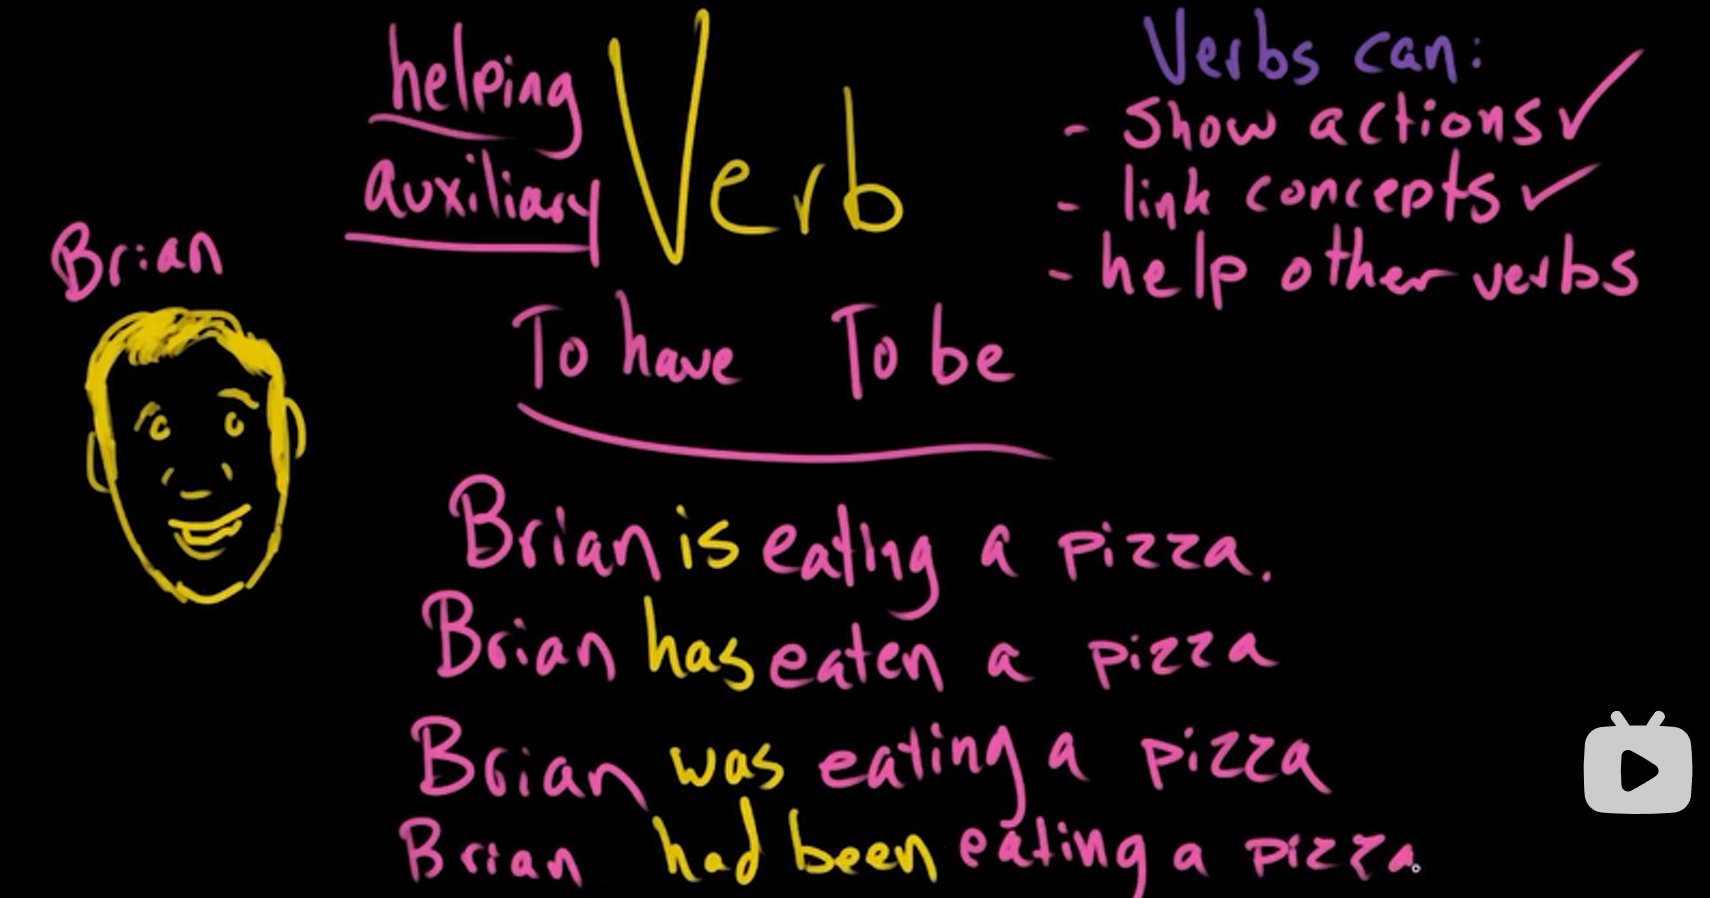 helping
auxiliary
Verb
Verbs can:
- Show actions ✓
- link concepts ✓
- help other verbs
Brian
To have To be
Brian is eating a pizza.
Brian has eaten a pizza
Brian was eating a pizza
Brian had been eating a pizza.